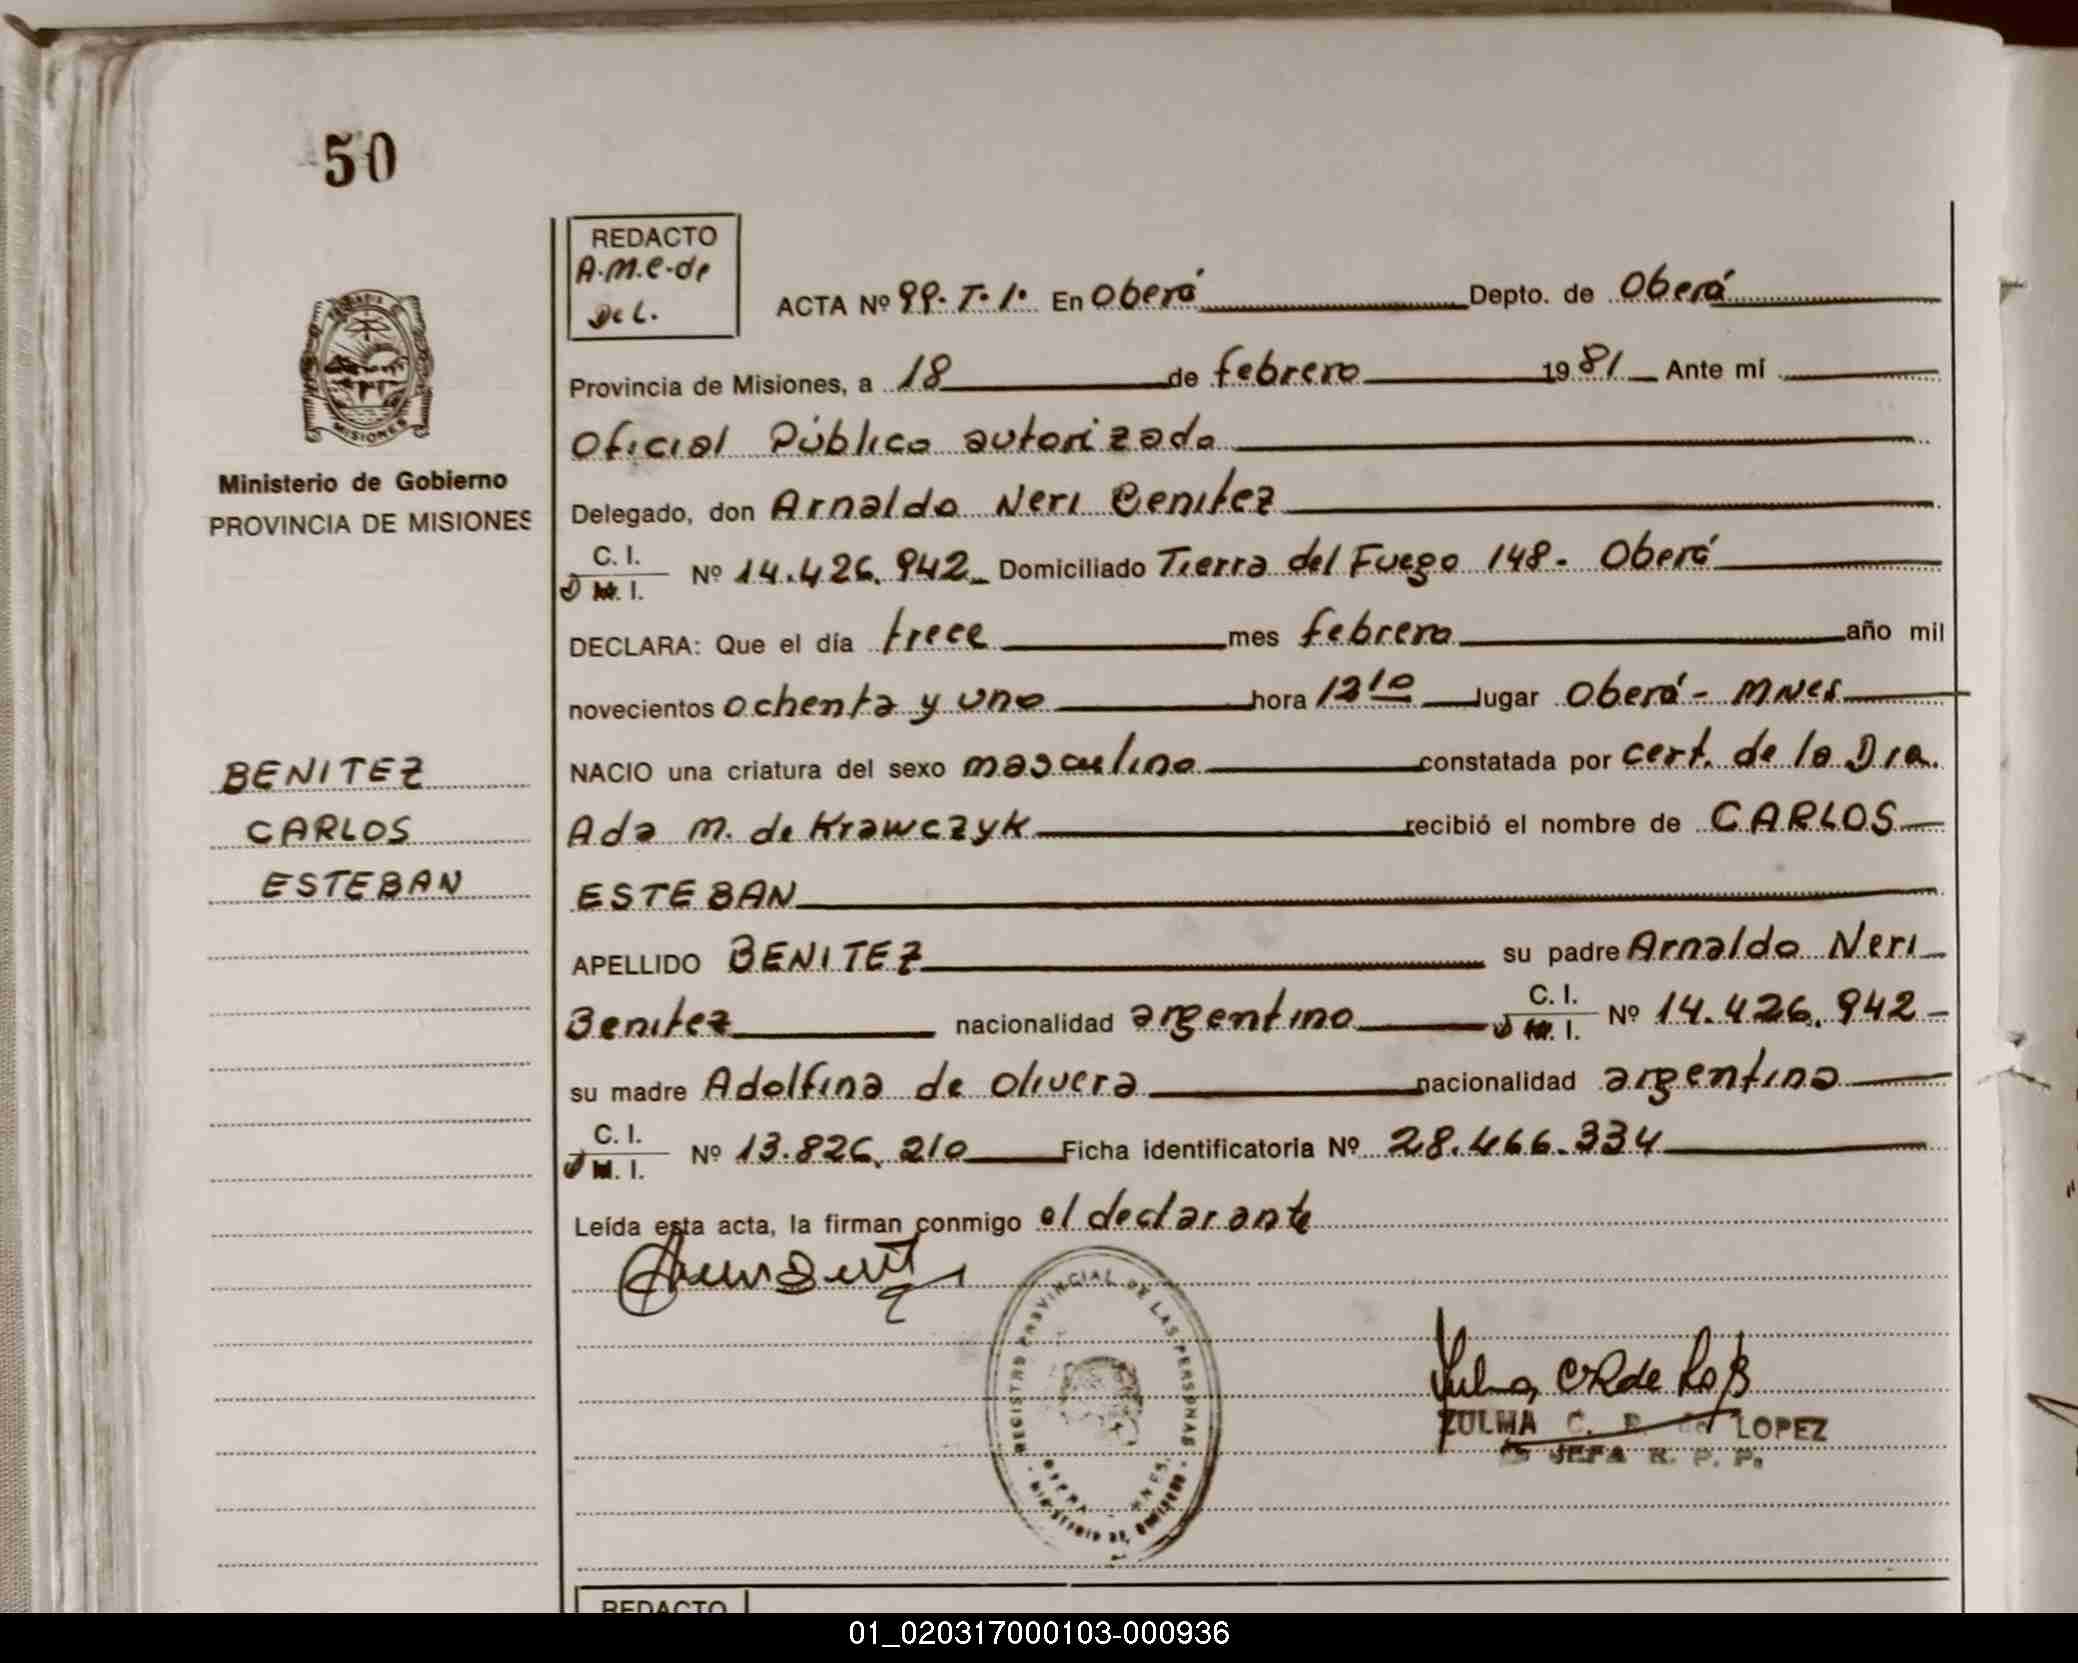 50
REDACTO
A.M.C. de
De L.
ACTA Nº 99. T. 1. En Oberá Depto. de Oberá
Provincia de Misiones, a 18 de febrero 1981 Ante mí
Oficial Público autorizado
Ministerio de Gobierno
PROVINCIA DE MISIONES
Delegado, don Arnaldo Neri Benitez
C. I.
D M. I. Nº 14.426.942 Domiciliado Tierra del Fuego 148. Oberá
DECLARA: Que el día trece mes febrero año mil
novecientos ochenta y uno hora 12 10 lugar Oberá - Mnes
BENITEZ
CARLOS
ESTEBAN
NACIO una criatura del sexo masculino constatada por cert. de la Dra.
Ada M. de Krawczyk recibió el nombre de CARLOS
ESTEBAN
APELLIDO BENITEZ su padre Arnaldo Neri
Benitez nacionalidad argentino C. I. D M. I. Nº 14.426.942
su madre Adolfina de Olivera nacionalidad argentina
C. I.
D M. I. Nº 13.826.210 Ficha identificatoria Nº 28.466.334
Leída esta acta, la firman conmigo el declarante
REGISTRO PROVINCIAL DE LAS PERSONAS
MINISTERIO DE GOBIERNO
ZULMA C. R. de LOPEZ
JEFA R. P. P.
REDACTO
01_020317000103-000936
MISIONES